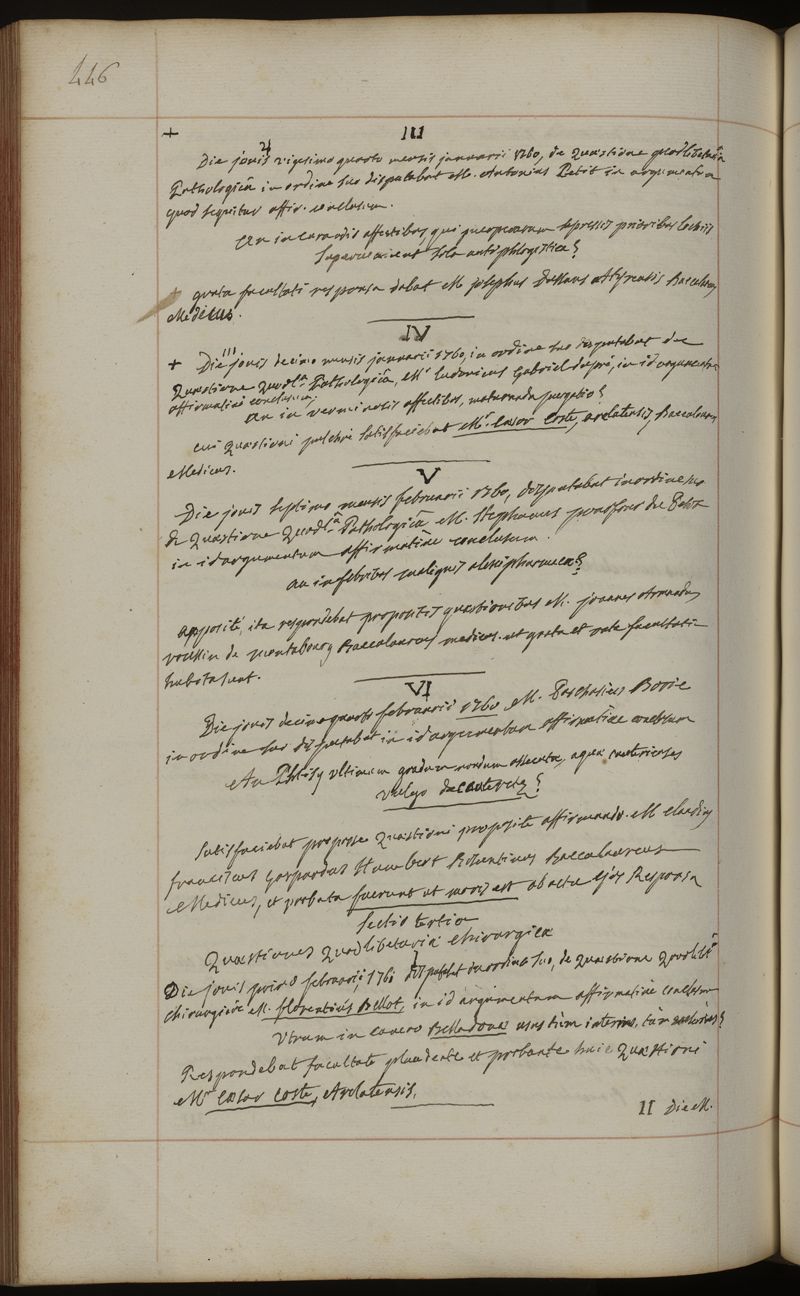 446
+ III
Die jovis vigesimo quarto mensis januarii 1760, de Quæstione quodlibetariâ
Pathologicâ in ordine suo disputabat M. Antonius Petit in argumentum
quod sequitur affir. conclusum.
An in curandis affectibus qui puerperarum supressis prioribus lochiis
superveniunt sola antiphlogistica?
+ grata facultati responsa dabat M josephus Baccalaureus
Medicus.
IV
+ Die jovis decimo mensis januarii 1760, in ordine suo disputabat de
Quæstione Quodl.â Pathologicâ, M.r ludovicus Gabriel dupré, in id argumentum
affirmativè conclusum,
an in verminosis affectibus, purgatio?
cui Quæstioni pulchrè satisfaciebat M.r Cæsar Coste, arelatensis, Baccalaureus
Medicus.
V
Die jovis septimo mensis februarii 1760, disputabat in ordine suo
de Quæstione Quodl.â Pathologicâ M. Stephanus
in id argumentum affirmativè conclusum.
an in febribus malignis alexipharmaca?
appositè, ita respondebat propositis quæstionibus M. joannes
de montabourg Baccalaureus medicus. ut grata et rata facultati
habita sunt.
VI
Die jovis decimo quarto februarii 1760 M. Paschasius Borie
in ordine suo disputabat in id argumentum affirmativè conclusum
An Phtisi ultimum gradum nondum assecuta, aquæ cauterienses
vulgo de Cauterets?
Satisfaciebat propose Quæstioni propositæ affirmando M Claudius
franciscus Gaspardus Humbert Baccalaureus
Medicus, et probata fuerunt ut moris est ab actu ejus Responsa
Sectio tertia
Quæstiones Quodlibetariæ chirurgicæ
I
Die jovis primo februarii 1760 disputabat in ordine suo, de Quæstione Quodlibâ
chirurgicâ M. florentius Bellot, in id argumentum affirmativè conclusum
Utrum in cancro Belladonæ usus tùm internus, tùm externus?
Respondebat facultate plaudente et probante huic Quæstioni
M.r Cæsar Coste, Arelatensis.
II Die M.